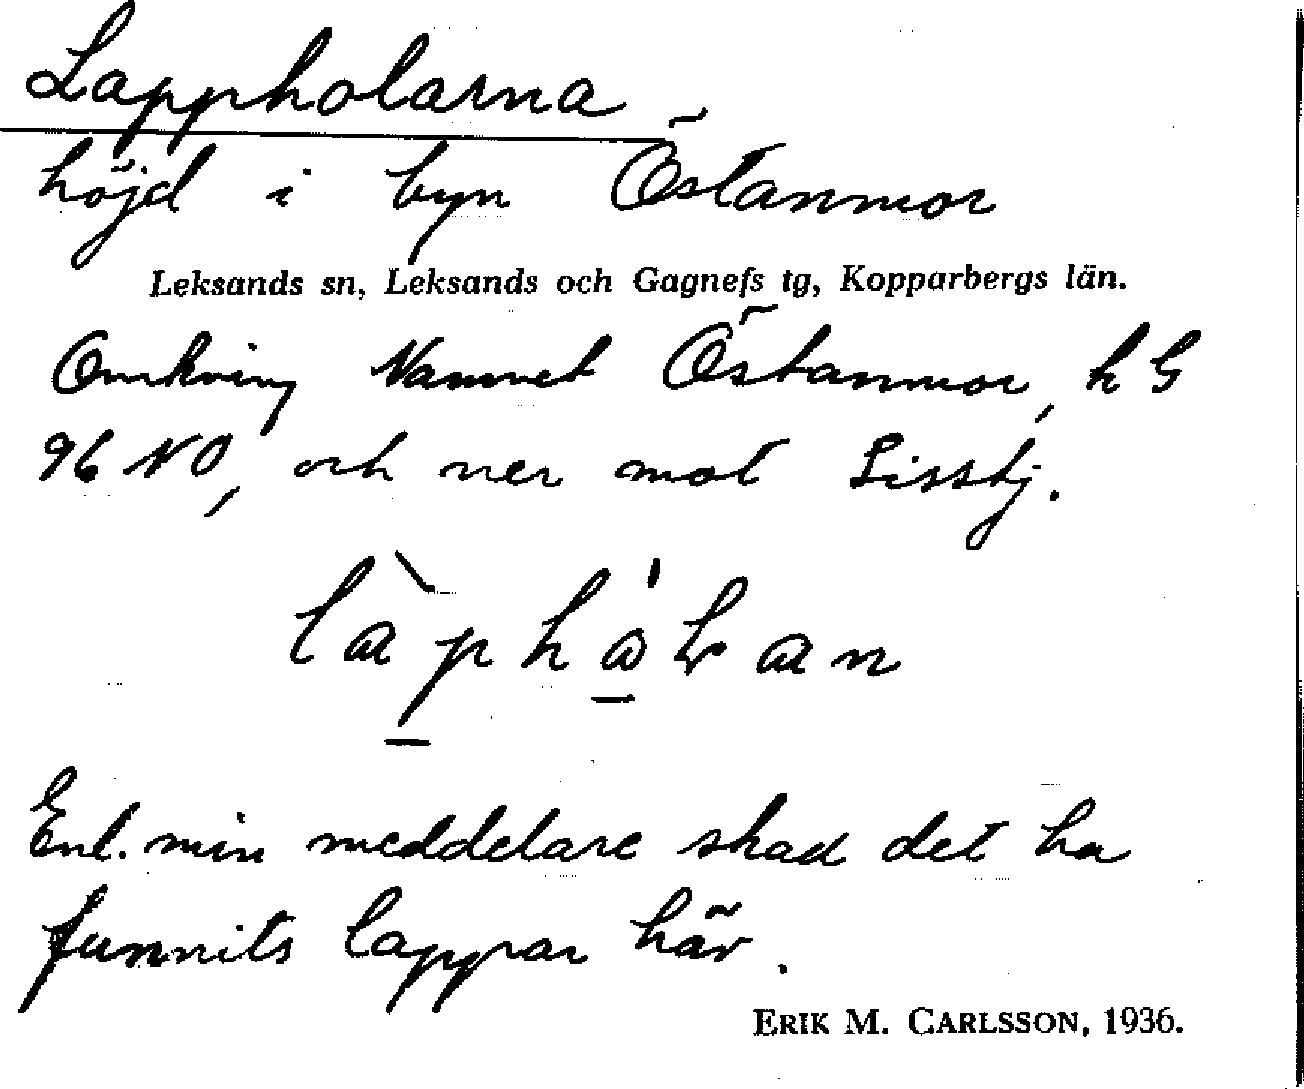 Lappholarna
höjd i byn Östanmor
Leksands sn, Leksands och Gagnefs tg, Kopparbergs län.
Omkring Namnet Östanmor, k G
96 NO, och ner mot Lissbj.
Enl. min meddelare skad det ha
funnits lappar här.
ERIK M. CARLSSON, 1936.